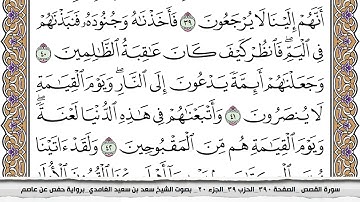 أَنَّهُمْ إِلَيْنَا لَا يُرْجَعُونَ ٣٩ فَأَخَذْنَٰهُ وَجُنُودَهُۥ فَنَبَذْنَٰهُمْ
فِى ٱلْيَمِّ ۖ فَٱنظُرْ كَيْفَ كَانَ عَٰقِبَةُ ٱلظَّٰلِمِينَ ٤٠
وَجَعَلْنَٰهُمْ أَئِمَّةً يَدْعُونَ إِلَى ٱلنَّارِ ۖ وَيَوْمَ ٱلْقِيَٰمَةِ
لَا يُنصَرُونَ ٤١ وَأَتْبَعْنَٰهُمْ فِى هَٰذِهِ ٱلدُّنْيَا لَعْنَةً ۖ
وَيَوْمَ ٱلْقِيَٰمَةِ هُم مِّنَ ٱلْمَقْبُوحِينَ ٤٢ وَلَقَدْ ءَاتَيْنَا
سورة القصص _ الصفحة ٣٩٠ _ الحزب ٣٩ _ الجزء ٢٠ _ بصوت الشيخ سعد بن سعيد الغامدي _ برواية حفص عن عاصم